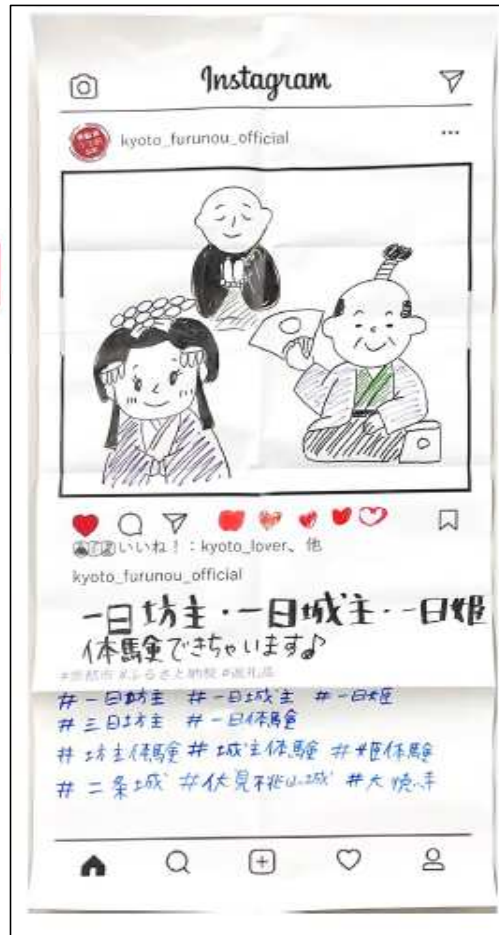 Instagram
kyoto_furunou_official
いいね！：kyoto_lover、他
kyoto_furunou_official
一日坊主・一日城主・一日姫
体験できちゃいます♪
#京都市 #ふるさと納税 #返礼品
#一日坊主 #一日城主 #一日姫
#三日坊主 #一日体験
#坊主体験 #城主体験 #姫体験
#二条城 #伏見桃山城